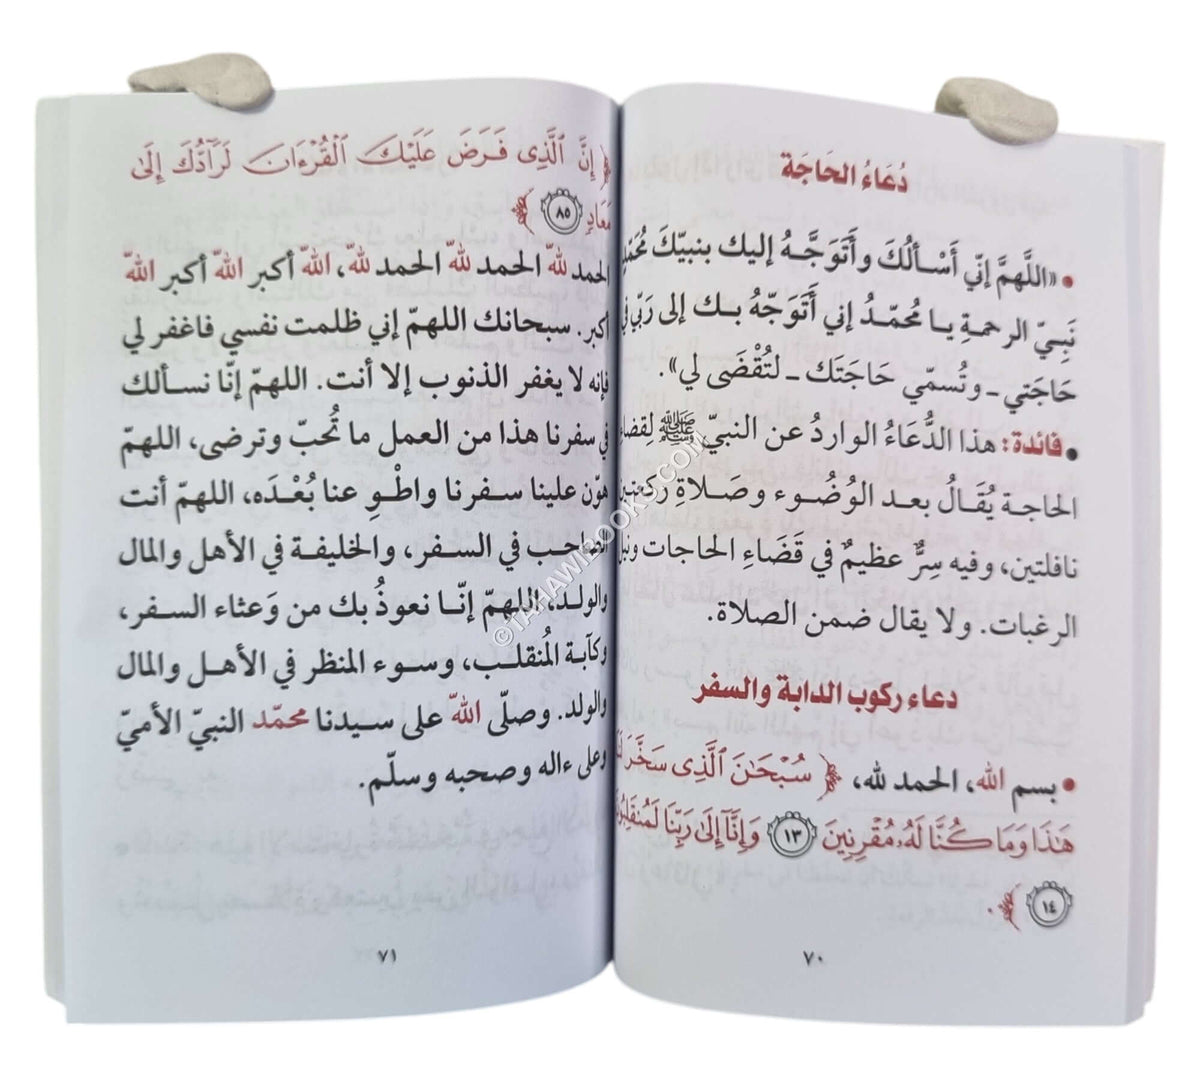 دُعَاءُ الحَاجَة
• «اللَّهمَّ إنّي أَسْألُكَ وأَتَوَجَّهُ إليك بنبيّكَ مُحَمَّدٍ
نَبِيِّ الرحمةِ يا مُحمّدُ إني أَتَوَجّهُ بك إلى رَبّي في
حَاجَتي ـ وتُسمّي حَاجَتَك ـ لتُقْضَى لي».
• فائدة: هذا الدُّعَاءُ الواردُ عن النبيّ ﷺ لِقضاء
الحاجة يُقَالُ بعد الوُضُوء وصَلاةِ ركعتين
نافلتين، وفيه سِرٌّ عظيمٌ في قَضَاءِ الحاجات ونيل
الرغبات. ولا يقال ضمن الصلاة.
دعاء ركوب الدابة والسفر
• بسم الله، الحمد لله، ﴿ سُبْحَٰنَ ٱلَّذِى سَخَّرَ لَنَا
هَٰذَا وَمَا كُنَّا لَهُۥ مُقْرِنِينَ ١٣ وَإِنَّآ إِلَىٰ رَبِّنَا لَمُنقَلِبُونَ
١٤ ﴾.
٧٠
﴿ إِنَّ ٱلَّذِى فَرَضَ عَلَيْكَ ٱلْقُرْءَانَ لَرَآدُّكَ إِلَىٰ
مَعَادٍ ٨٥ ﴾
الحمد لله الحمد لله الحمد لله، الله أكبر الله أكبر الله
أكبر. سبحانك اللهمّ إني ظلمت نفسي فاغفر لي
فإنه لا يغفر الذنوب إلا أنت. اللهمّ إنّا نسألك
في سفرنا هذا من العمل ما تُحبّ وترضى، اللهمّ
هوّن علينا سفرنا واطْوِ عنا بُعْدَه، اللهمّ أنت
الصاحب في السفر، والخليفة في الأهل والمال
والولد، اللهمّ إنّا نعوذُ بك من وَعثاء السفر،
وكآبة المُنقلب، وسوء المنظر في الأهل والمال
والولد. وصلّى الله على سيدنا محمّد النبيّ الأميّ
وعلى ءاله وصحبه وسلّم.
٧١
©TAHAWIBOOKS.COM